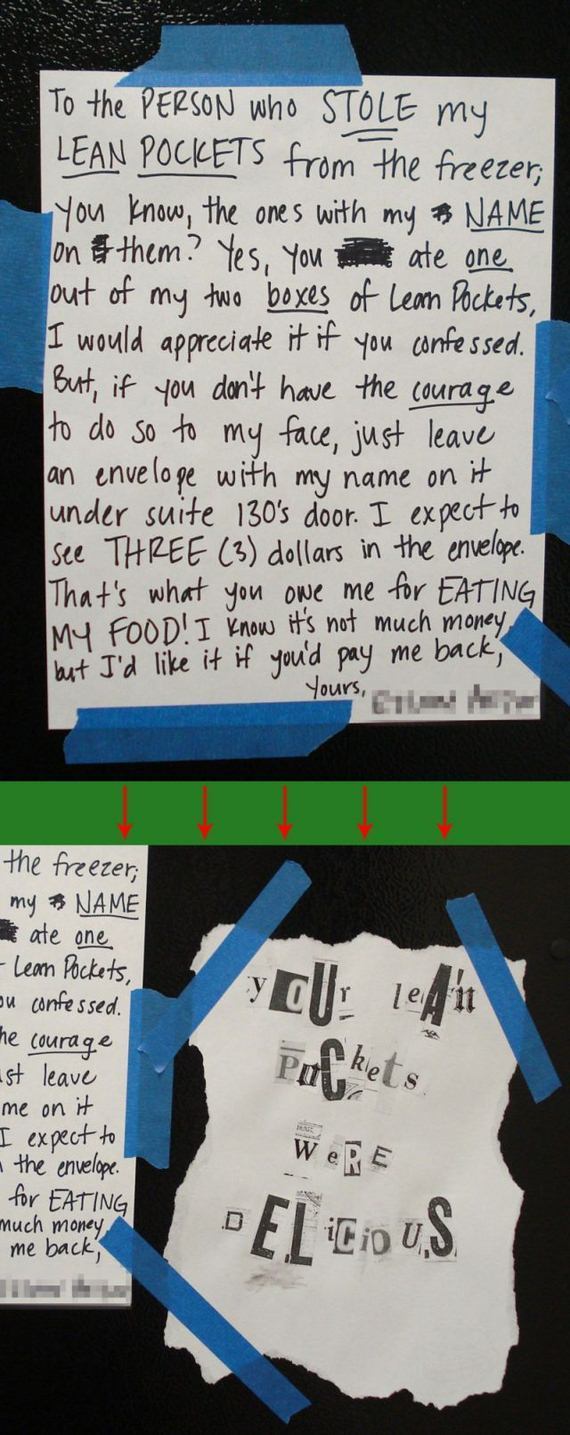 To the PERSON who STOLE my
LEAN POCKETS from the freezer;
you know, the ones with my NAME
on them? Yes, you ate one
out of my two boxes of Lean Pockets,
I would appreciate it if you confessed.
But, if you don't have the courage
to do so to my face, just leave
an envelope with my name on it
under suite 130's door. I expect to
see THREE (3) dollars in the envelope.
That's what you owe me for EATING
MY FOOD! I know it's not much money,
but I'd like it if you'd pay me back,
Yours,
the freezer;
my NAME
ate one
Lean Pockets,
ou confessed.
he courage
st leave
me on it
I expect to
the envelope.
for EATING
much money
me back,
yOUr leA'n
PoCkets
WeRE
DELiCiOUS.